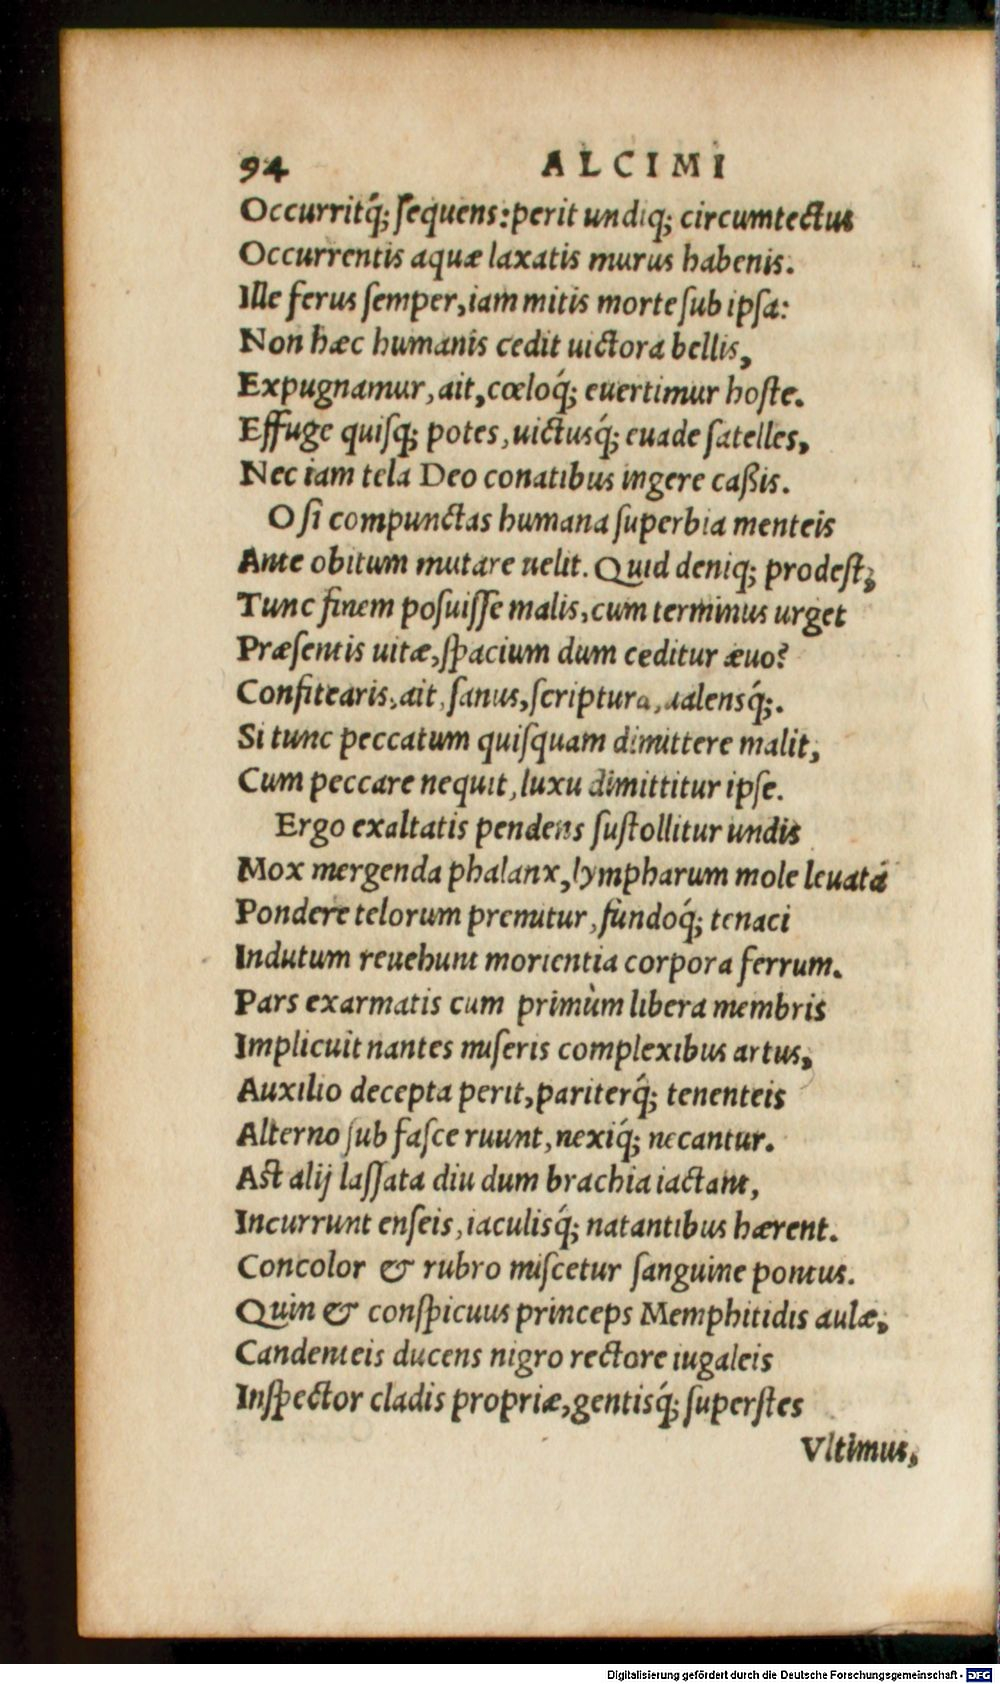 94 ALCIMI
Occurritq́; ſequens: perit undiq; circumtectus
Occurrentis aquæ laxatis murus habenis.
Ille ferus ſemper, iam mitis morte ſub ipſa:
Non hæc humanis cedit uictora bellis,
Expugnamur, ait, cœloq́; euertimur hoſte.
Effuge quiſq; potes, uictusq́; euade ſatelles,
Nec iam tela Deo conatibus ingere caßis.
O ſi compunctas humana ſuperbia menteis
Ante obitum mutare uelit. Quid deniq; prodeſt,
Tunc finem poſuiſſe malis, cum terminus urget
Præſentis uitæ, ſpacium dum ceditur æuo?
Confitearis, ait, ſanus, ſcriptura, ualensq́;.
Si tunc peccatum quiſquam dimittere malit,
Cum peccare nequit, luxu dimittitur ipſe.
Ergo exaltatis pendens ſuſtollitur undis
Mox mergenda phalanx, lympharum mole leuatá
Pondere telorum premitur, fundoq́; tenaci
Indutum reuehunt morientia corpora ferrum.
Pars exarmatis cum primùm libera membris
Implicuit nantes miſeris complexibus artus,
Auxilio decepta perit, pariterq́; tenenteis
Alterno ſub faſce ruunt, nexiq́; necantur.
Aſt alij laſſata diu dum brachia iactant,
Incurrunt enſeis, iaculisq́; natantibus hærent.
Concolor & rubro miſcetur ſanguine pontus.
Quin & conſpicuus princeps Memphitidis aulæ,
Candenteis ducens nigro rectore iugaleis
Inſpector cladis propriæ, gentisq́; ſuperſtes
Vltimus,
Digitalisierung gefördert durch die Deutsche Forschungsgemeinschaft - DFG